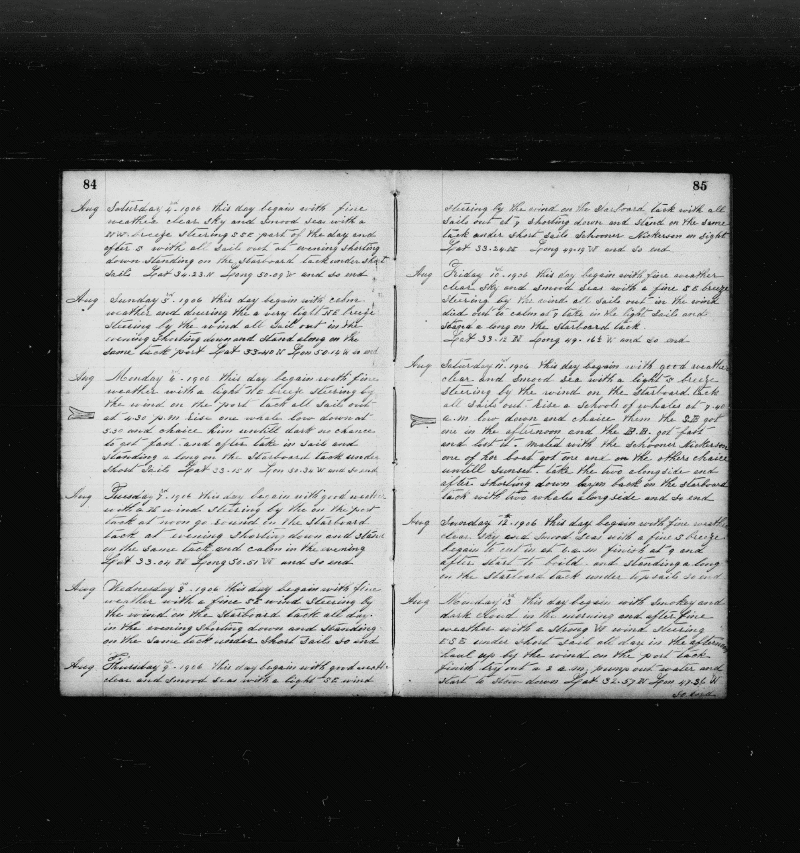 84
Aug Saturday 4th 1906 this day begain with fine
weather clear Sky and Smood Seas with a
NW breeze Steering SSE part of the day and
after 5 with all Sail out at evening Shorting
down Standing on the Starboard tack under Short
Sails Lat 34.23 N Long 50.09 W and So end
Aug Sunday 5th 1906 this day begain with calm
weather and duering the a very light NE breeze
Steering by the wind all Sail out in the
evening Shorting down and Stand along on the
Same tack port Lat 33-40 N Lon 50.16 W so end
Aug Monday 6 - 1906 this day begain with fine
weather with a light breeze Steering by
the wind on the port tack all Sail out
at 4.30 p.m. rise one whale low down at
5.30 and chaice him untill dark no chance
to get fast and after take in Sails and
Standing a long on the Starboard tack under
Short Sails Lat 33-15 N Lon 50.36 W and So end
Aug Tuesday 7th 1906 this day begain with good weather
with a wind Steering by the on the pot
tack at noon go round on the Starboard
tack at evening Shorting down and Stand
on the Same tack and calm in the evening
Lat 33.04 N Long 50.51 W and So end
Aug Wednesday 8 - 1906 this day begain with fine
weather with a fine SE wind Steering by
the wind on the Starboard tack all day
in the evening Shorting down and Standing
on the Same tack under Short Sails So end
Aug Thursday 9 - 1906 this day begain with good weather
clear and Smood Seas with a light SE wind
85
Steering by the wind on the Starboard tack with all
Sails out at 7 Shorting down and Stand on the Same
tack under Short Sails Schooner Nickerson in Sight
Lat 33-24 N Long 49-19 W and So end
Aug Friday 10 - 1906 this day begain with fine weather
clear Sky and Smood Seas with a fine SE breeze
Steering by the wind all Sails out in the wind
died out to calm at 7 take in the light Sails and
Stand a long on the Starboard tack
Lat 33-12 N Long 49-16½ W and So end
Aug Saturday 11 - 1906 this day begain with good weather
clear and Smood Sea with a light S breeze
Steering by the wind on the Starboard tack
all Sails out rise a Schools of whales at 7-40
a.m. low down and chaice them the S.B got
me in the afternoon and the B.B. got fast
and lost it mated with the Schooner Nickerson
one of her boat got me and on the others chaice
untill Sunset take the two alongside and
after Shorting down back on the Starboard
tack with two whales alongside and So end
Aug Sunday 12 - 1906 this day begain with fine weather
clear Sky and Smood Seas with a fine S breeze
began to cut in at 6 a.m. finish at 9 and
after Start to boild and Standing a long
on the Starboard tack under topsails So end
Aug Monday 13 this day begain with Smokey and
dark Cloud in the morning and after fine
weather with a Strong W wind Steering
ESE under Short Sail all day in the afternoon
haul up by the wind on the port tack
finish try out a 2 a.m. pump out water and
Start to Stow down Lat 32-57 N Lon 47-36 W
So end